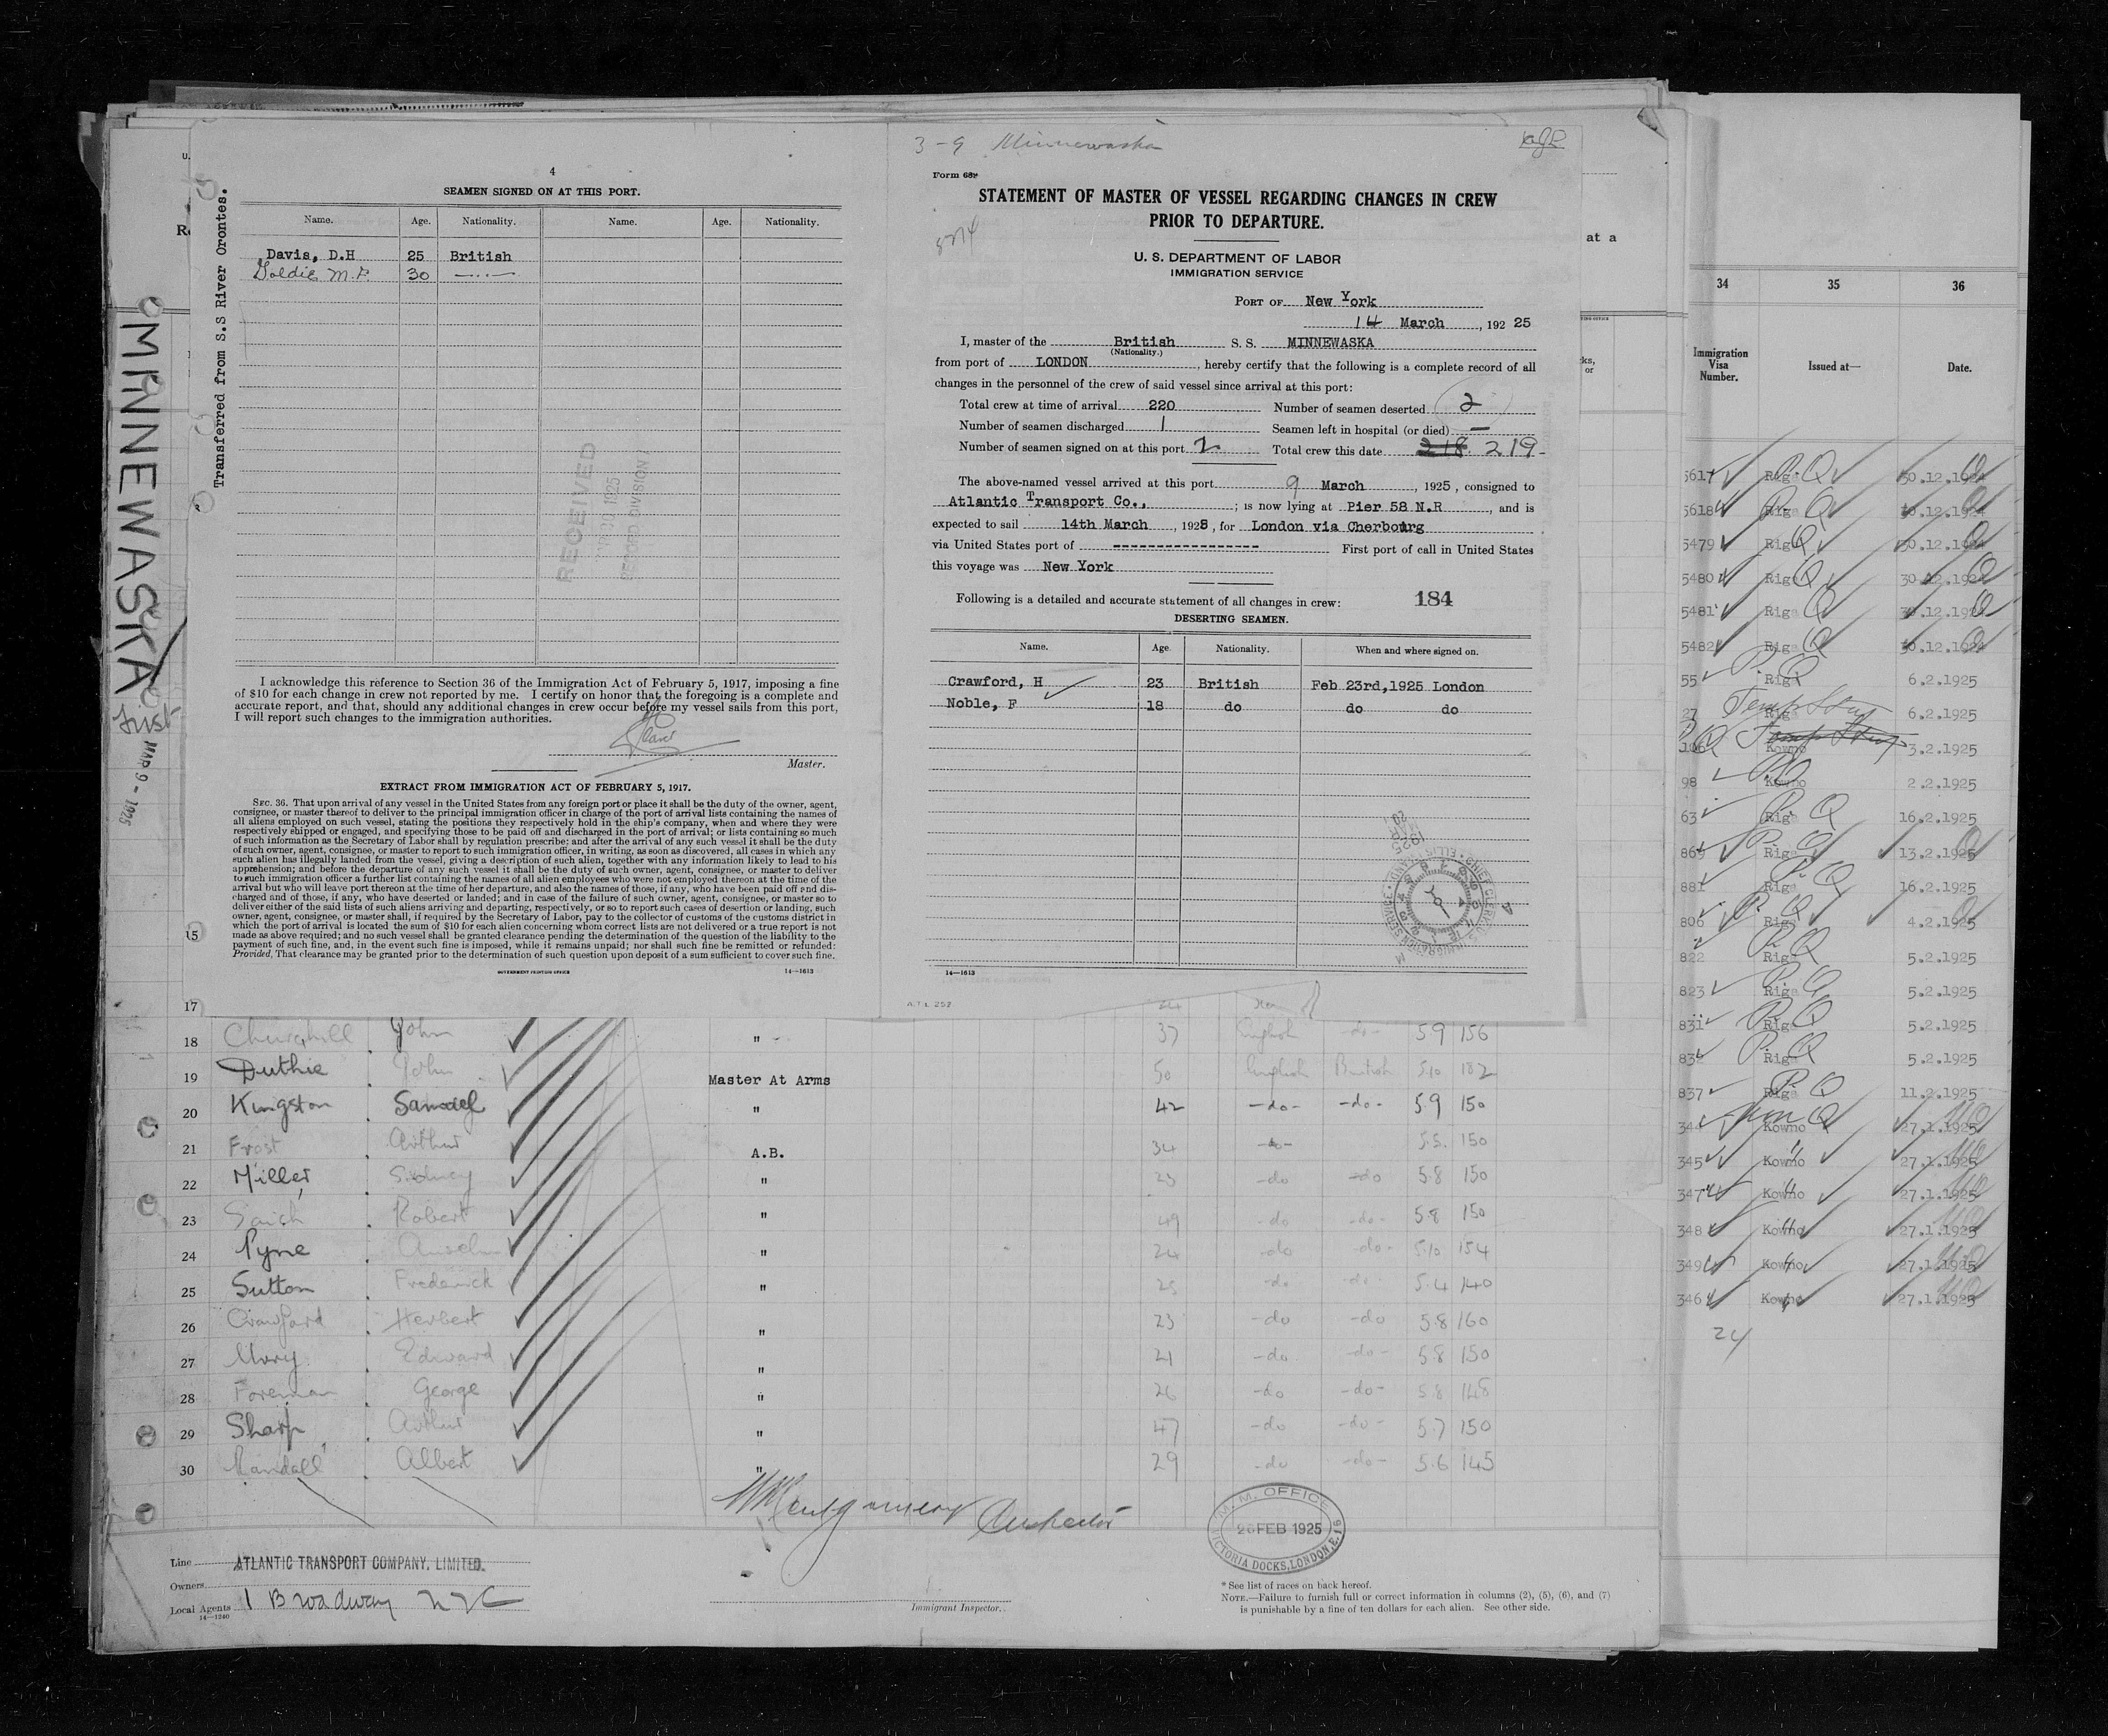 4
SEAMEN SIGNED ON AT THIS PORT.
Name. Age. Nationality. Name. Age. Nationality.
Davis, D.H 25 British
Goldie M.P. 30 —··—
Transferred from S.S River Orontes.
MINNEWASKA
First
MAR 9 - 1925
RECEIVED
1925
RECORD DIVISION
I acknowledge this reference to Section 36 of the Immigration Act of February 5, 1917, imposing a fine
of $10 for each change in crew not reported by me. I certify on honor that the foregoing is a complete and
accurate report, and that, should any additional changes in crew occur before my vessel sails from this port,
I will report such changes to the immigration authorities.
Master.
EXTRACT FROM IMMIGRATION ACT OF FEBRUARY 5, 1917.
SEC. 36. That upon arrival of any vessel in the United States from any foreign port or place it shall be the duty of the owner, agent,
consignee, or master thereof to deliver to the principal immigration officer in charge of the port of arrival lists containing the names of
all aliens employed on such vessel, stating the positions they respectively hold in the ship's company, when and where they were
respectively shipped or engaged, and specifying those to be paid off and discharged in the port of arrival; or lists containing so much
of such information as the Secretary of Labor shall by regulation prescribe; and after the arrival of any such vessel it shall be the duty
of such owner, agent, consignee, or master to report to such immigration officer, in writing, as soon as discovered, all cases in which any
such alien has illegally landed from the vessel, giving a description of such alien, together with any information likely to lead to his
apprehension; and before the departure of any such vessel it shall be the duty of such owner, agent, consignee, or master to deliver
to such immigration officer a further list containing the names of all alien employees who were not employed thereon at the time of the
arrival but who will leave port thereon at the time of her departure, and also the names of those, if any, who have been paid off and dis-
charged and of those, if any, who have deserted or landed; and in case of the failure of such owner, agent, consignee, or master so to
deliver either of the said lists of such aliens arriving and departing, respectively, or so to report such cases of desertion or landing, such
owner, agent, consignee, or master shall, if required by the Secretary of Labor, pay to the collector of customs of the customs district in
which the port of arrival is located the sum of $10 for each alien concerning whom correct lists are not delivered or a true report is not
made as above required; and no such vessel shall be granted clearance pending the determination of the question of the liability to the
payment of such fine, and, in the event such fine is imposed, while it remains unpaid; nor shall such fine be remitted or refunded:
Provided, That clearance may be granted prior to the determination of such question upon deposit of a sum sufficient to cover such fine.
GOVERNMENT PRINTING OFFICE 14—1613
3-9 Minnewaska
Form 689
STATEMENT OF MASTER OF VESSEL REGARDING CHANGES IN CREW
PRIOR TO DEPARTURE.
U. S. DEPARTMENT OF LABOR
IMMIGRATION SERVICE
PORT OF New York
14 March, 192 25
I, master of the British S. S. MINNEWASKA
(Nationality.)
from port of LONDON, hereby certify that the following is a complete record of all
changes in the personnel of the crew of said vessel since arrival at this port:
Total crew at time of arrival 220 Number of seamen deserted 2
Number of seamen discharged 1 Seamen left in hospital (or died) —
Number of seamen signed on at this port 2 Total crew this date 218 219
The above-named vessel arrived at this port 9 March, 1925, consigned to
Atlantic Transport Co., ; is now lying at Pier 58 N.R, and is
expected to sail 14th March, 1928, for London via Cherbourg
via United States port of ----------------- First port of call in United States
this voyage was New York
Following is a detailed and accurate statement of all changes in crew: 184
DESERTING SEAMEN.
Name. Age. Nationality. When and where signed on.
Crawford, H 23 British Feb 23rd,1925 London
Noble, F 18 do do do
14—1613
A.T.L. 252
at a
34 35 36
Immigration Visa Number. Issued at— Date.
5617 Riga 30.12.1924
5618 Riga 30.12.1924
5479 Riga 30.12.1924
5480 Riga 30.12.1924
5481 Riga 30.12.1924
5482 Riga 30.12.1924
55 Riga 6.2.1925
27 Riga 6.2.1925
106 Kowno 3.2.1925
98 Kowno 2.2.1925
63 Riga 16.2.1925
869 Riga 13.2.1925
881 Riga 16.2.1925
806 Riga 4.2.1925
822 Riga 5.2.1925
823 Riga 5.2.1925
831 Riga 5.2.1925
832 Riga 5.2.1925
837 Riga 11.2.1925
344 Kowno 27.1.1925
345 Kowno 27.1.1925
347 Kowno 27.1.1925
348 Kowno 27.1.1925
349 Kowno 27.1.1925
346 Kowno 27.1.1925
24
15
17
18 Churchill John " 37 English -do- 5.9 156
19 Duthie John Master At Arms 50 English British 5.10 182
20 Kingston Samuel " 42 -do- -do- 5.9 150
21 Frost Arthur A.B. 34 -do- 5.5. 150
22 Miller Sidney " 23 -do -do 5.8 150
23 Saich Robert " 49 -do -do- 5.8 150
24 Pyne Anselm " 24 -do -do- 5.10 154
25 Sutton Frederick " 25 -do -do- 5.4 140
26 Crawford Herbert " 23 -do -do 5.8 160
27 Mory Edward " 21 -do -do- 5.8 150
28 Foreman George " 26 -do -do- 5.8 148
29 Sharp Arthur " 47 -do -do- 5.7 150
30 Randall Albert " 29 -do -do- 5.6 145
M.M. OFFICE
26 FEB 1925
VICTORIA DOCKS, LONDON, E.16
Line ATLANTIC TRANSPORT COMPANY, LIMITED.
Owners
Local Agents 1 Broadway NYC
14—1240
Immigrant Inspector.
* See list of races on back hereof.
NOTE.—Failure to furnish full or correct information in columns (2), (5), (6), and (7)
is punishable by a fine of ten dollars for each alien. See other side.